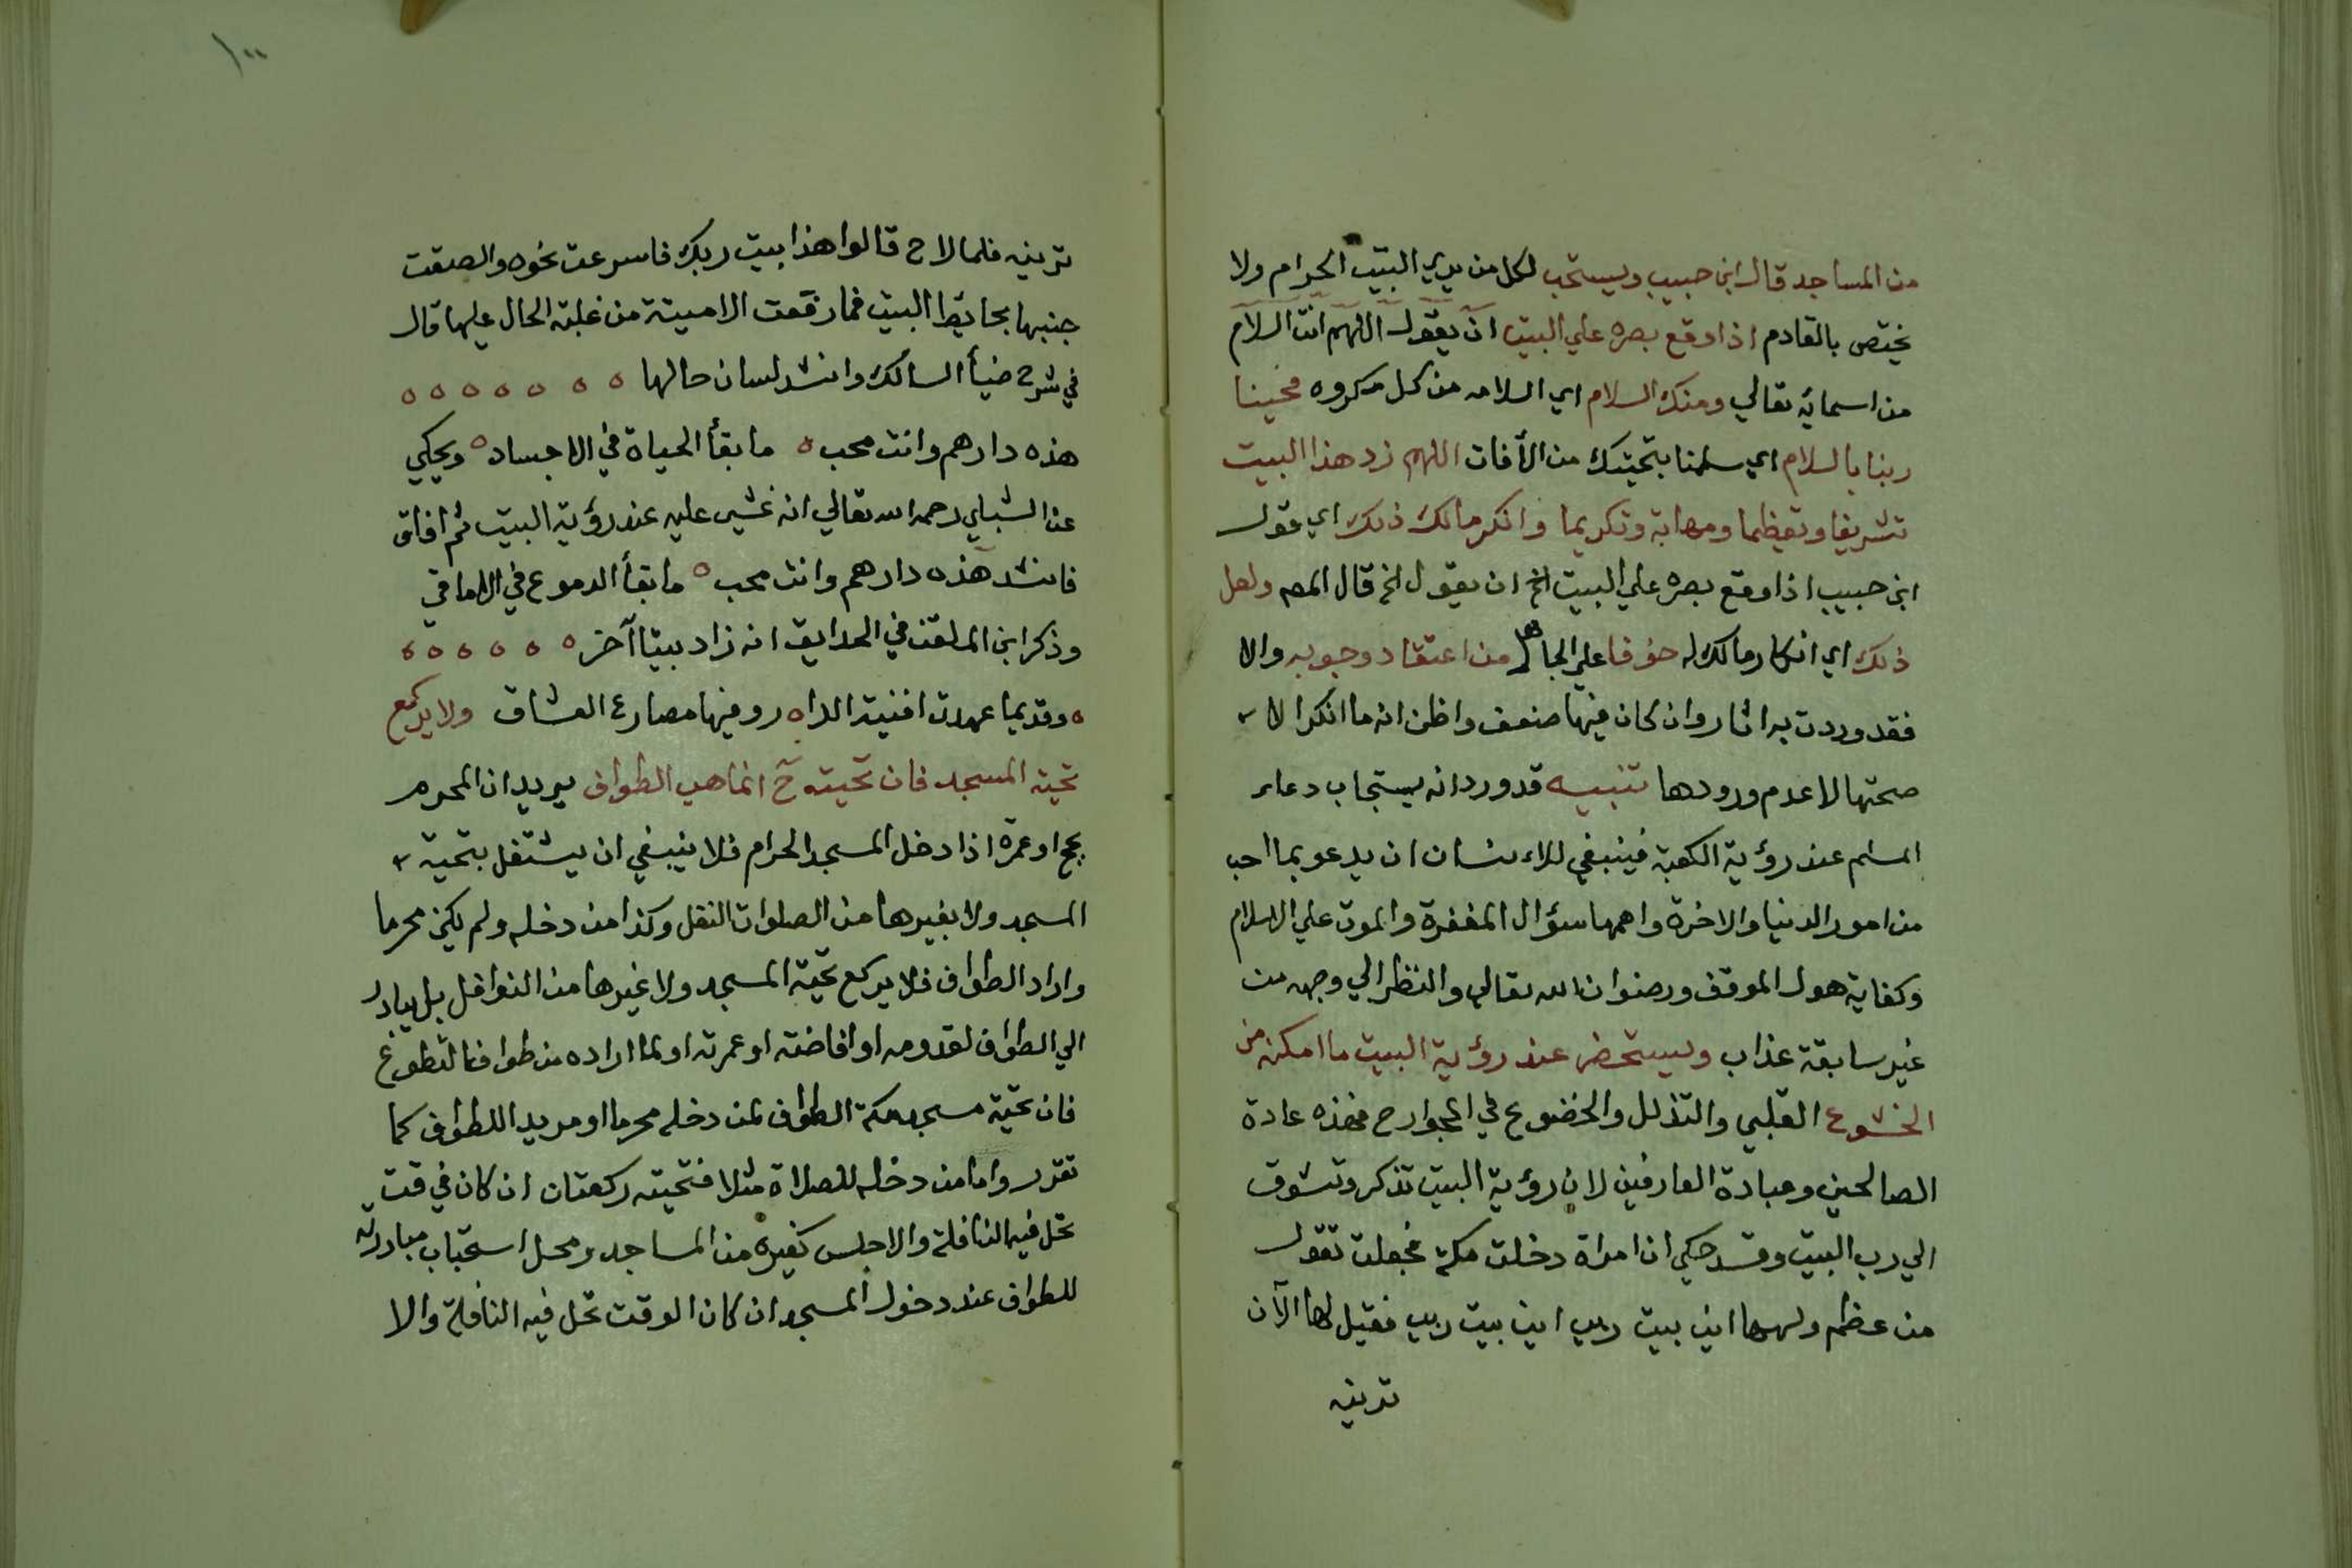 من المساجد قال ابن حبيب ويستحب لكل من يري البيت الحرام ولا
يختص بالقادم اذا وقع بصره علي البيت ان يقول اللهم انت السلام
من اسمائه تعالي ومنك السلام اي السلامه من كل مكروه فحينا
ربنا بالسلام اي سلمنا بتحيتك من الأفات اللهم زد هذا البيت
تشريفا وتعظيما ومهابة وتكريما وانكر مالك ذلك اي قول
ابن حبيب اذا وقع بصره علي البيت الخ ان يقول الخ قال المص ولعل
ذلك اي انكار مالك له خوفا علي الجاهل من اعتقاد وجوبه والا
فقد وردت به اثار وان كان فيها ضعف واظن انه ما انكر الا
صحتها لا عدم ورودها تنبيه قد ورد انه يستجاب دعاء
المسلم عند رؤية الكعبة فينبغي للانسان ان يدعو بما احب
من امور الدنيا والاخرة واهمها سؤال المغفرة والموت علي الاسلام
وكفاية هول الموقف ورضوان الله تعالي والنظر الي وجهه من
غير سابقة عذاب وليستحضر عند رؤية البيت ما امكنه من
الخشوع القلبي والتذلل والخضوع في الجوارح فهذه عادة
الصالحين وعبادة العارفين لان رؤية البيت تذكر وتشوق
الي رب البيت وقد حكي ان امراة دخلت مكة فجعلت تقول
من عظم ولهها اين بيت ربي اين بيت ربي فقيل لها الآن
ترينه
١٠٠
ترينه فلما لاح قالوا هذا بيت ربك فاسرعت نحوه والصقت
جنبها بحايط البيت فما رفعت الا ميتة من غلبة الحال عليها قال
في شرح ضيأ السالك وانشد لسان حالها ه ه ه ه ه ه ه
هذه دارهم وانت محب ه ما بقأ الحياة في الاجساد ه ويحكي
عن الشبلي رحمه الله تعالي انه غشي عليه عند رؤية البيت ثم افاق
فانشد هذه دارهم وانت محب ه ما بقأ الدموع في الاماقي
وذكر ابن الملقن في الحدايق انه زاد بيتا آخر ه ه ه ه ه ه
ه وقديما عهدت افنية الدا ه ر وفيها مصارع العشاق ولا يركع
تحية المسجد فان تحيته ح انما هي الطواف يريد ان المحرم
بحج او عمرة اذا دخل المسجد الحرام فلا ينبغي ان يشتغل بتحية
المسجد ولا بغيرها من الصلوات النفل وكذا من دخله ولم يكن محرما
واراد الطواف فلا يركع تحية المسجد ولا غيرها من النوافل بل يبادر
الي الطواف لقدومه او افاضته او عمرته او لما اراده من طواف التطوع
فان تحية مسجد مكة الطواف لمن دخله محرما او مريدا للطواف كما
تقرر واما من دخله للصلاة مثلا فتحيته ركعتان ان كان في وقت
تحل فيه النافلة والا جلس كغيره من المساجد ومحل استحباب مبادرته
للطواف عند دخول المسجد ان كان الوقت تحل فيه النافلة والا